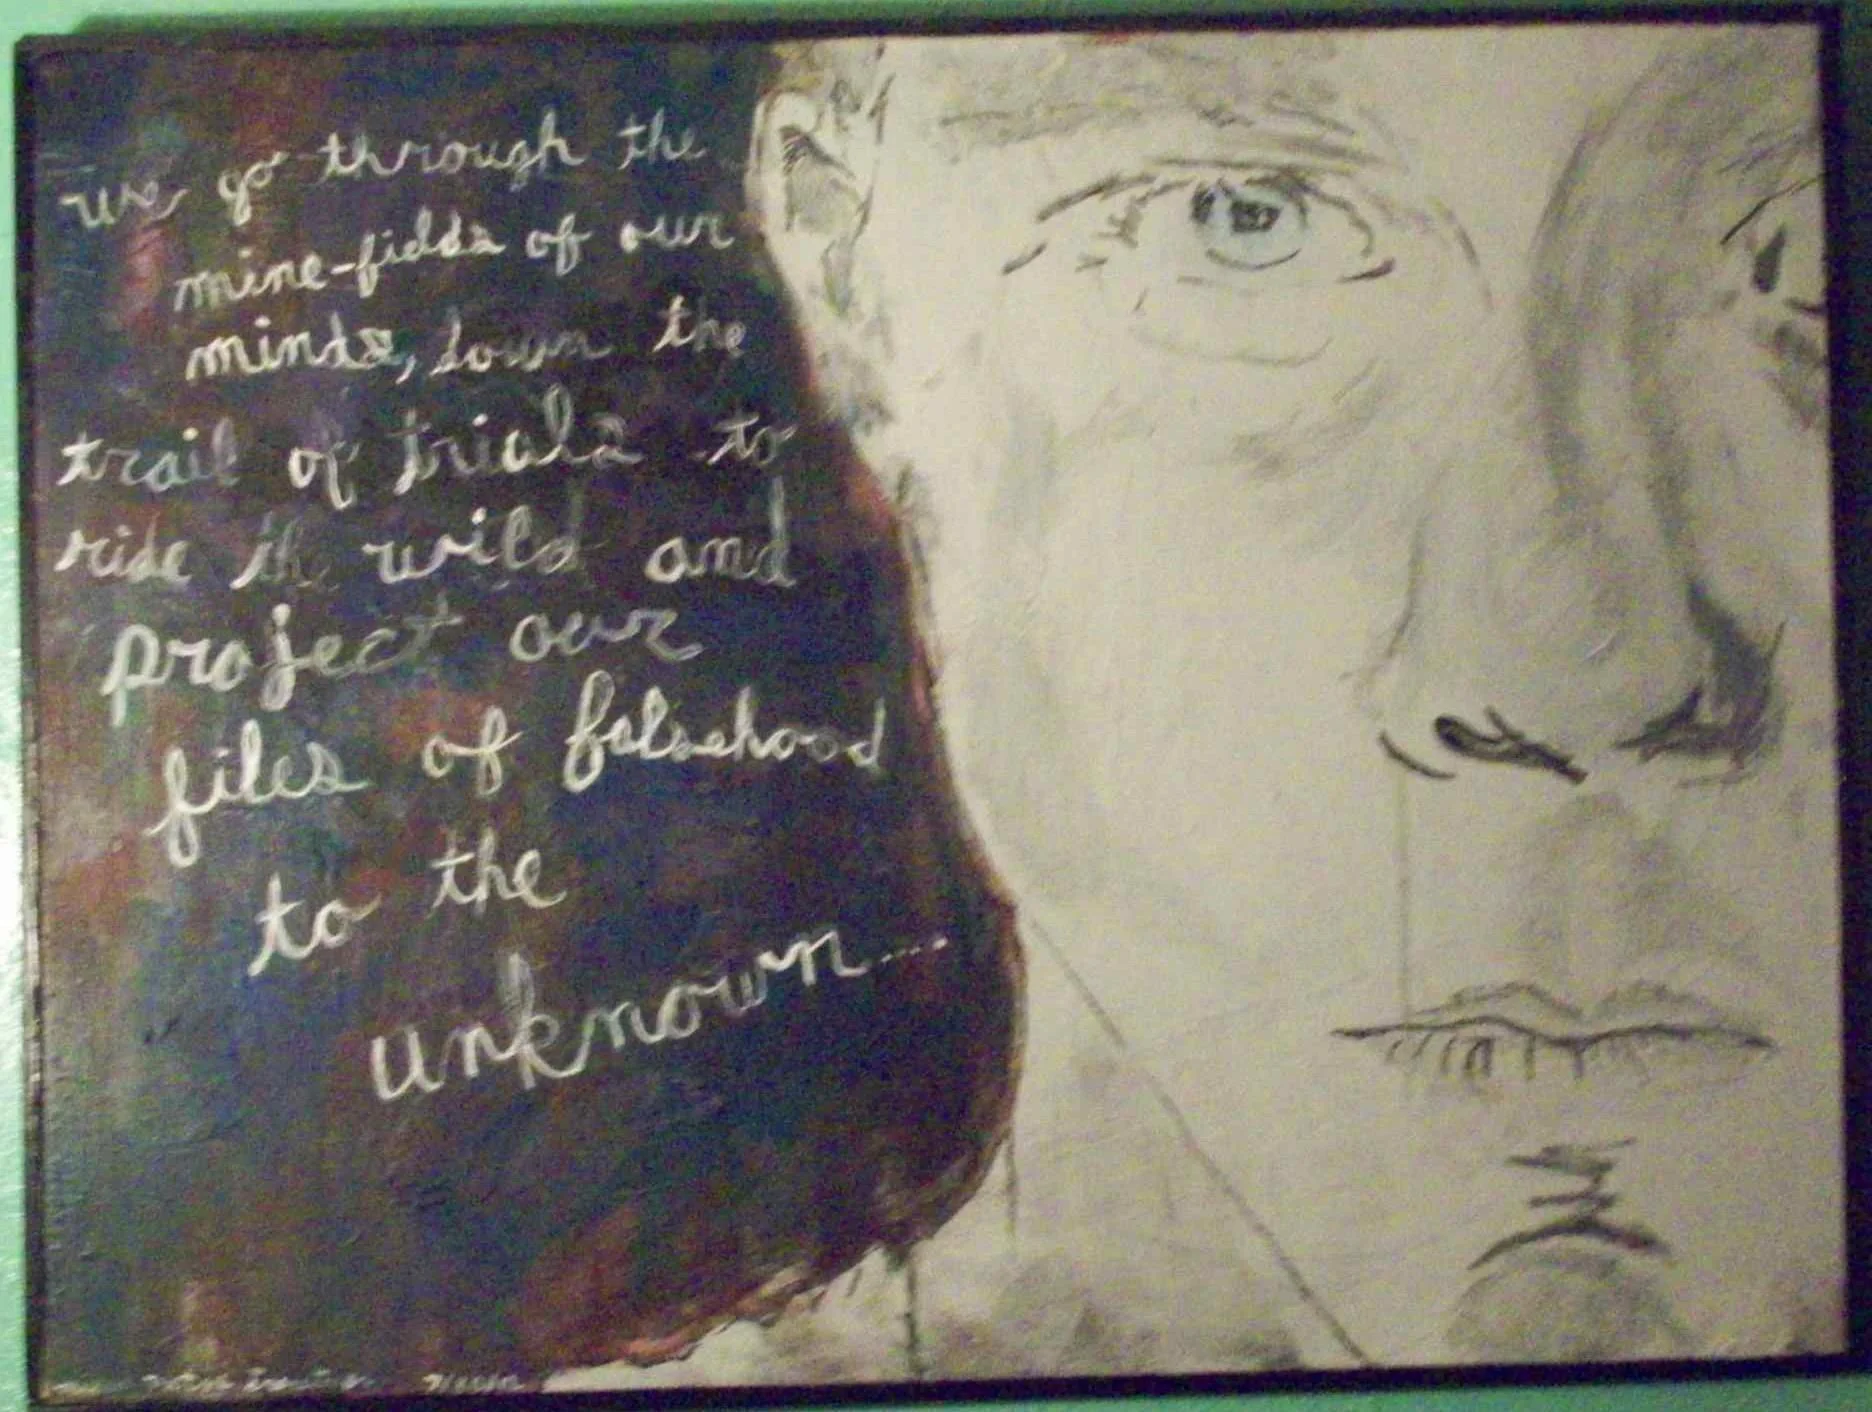 we go through the
mine-fields of our
minds, down the
trail of trials to
ride the wild and
project our
files of falsehood
to the
unknown....